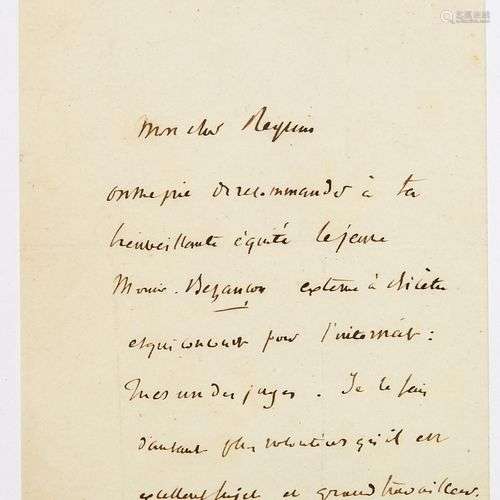 mon cher Requin
on me prie de recommander à ta
bienveillante équité le jeune
Monsr. Bezançon externe à Bicêtre
et qui concourt pour l'internat :
tu es un des juges. Je le fais
d'autant plus volontiers qu'il est
excellent sujet et grand travailleur